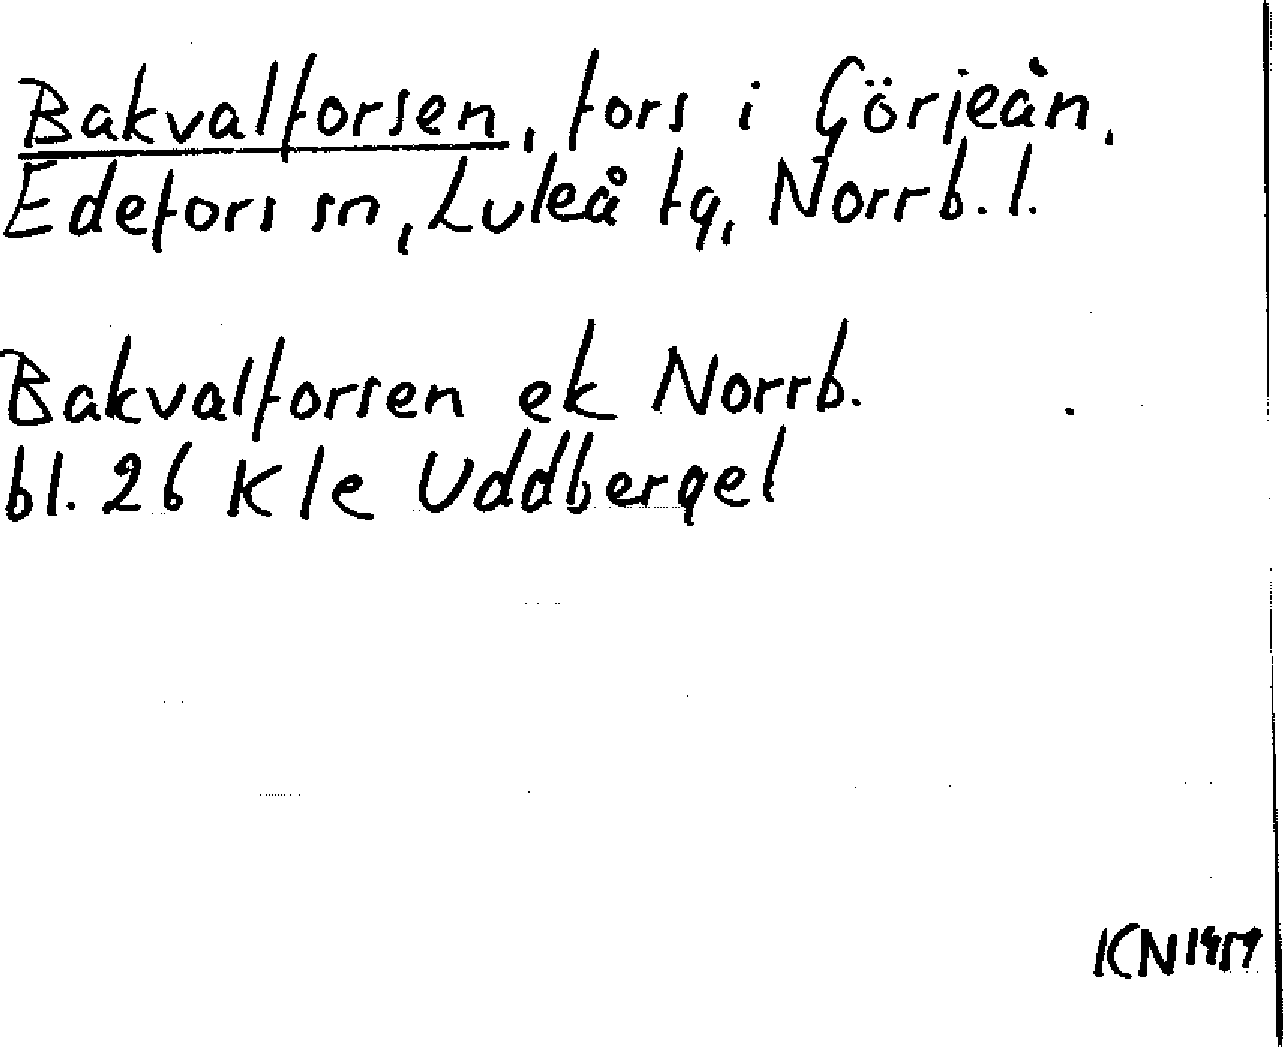 Bakvalforsen, fors i Görjeån,
Edefors sn, Luleå tg, Norrb. l.
Bakvalforsen ek Norrb.
bl. 26 K le Uddberget
KN 1959